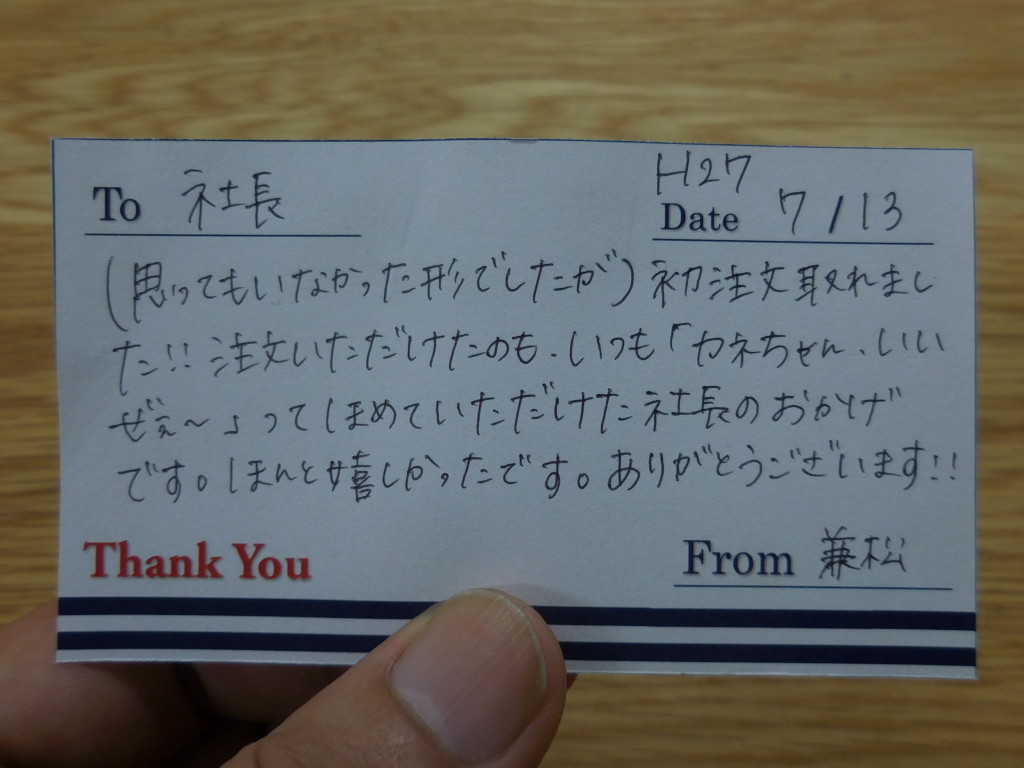 To 社長
H27
Date 7/13
(思ってもいなかった形でしたが)初注文取れまし
た!!注文いただけたのも、いつも「カネちゃん、いい
ぜぇ~」ってほめていただけた社長のおかげ
です。ほんと嬉しかったです。ありがとうございます!!
Thank You
From 兼松